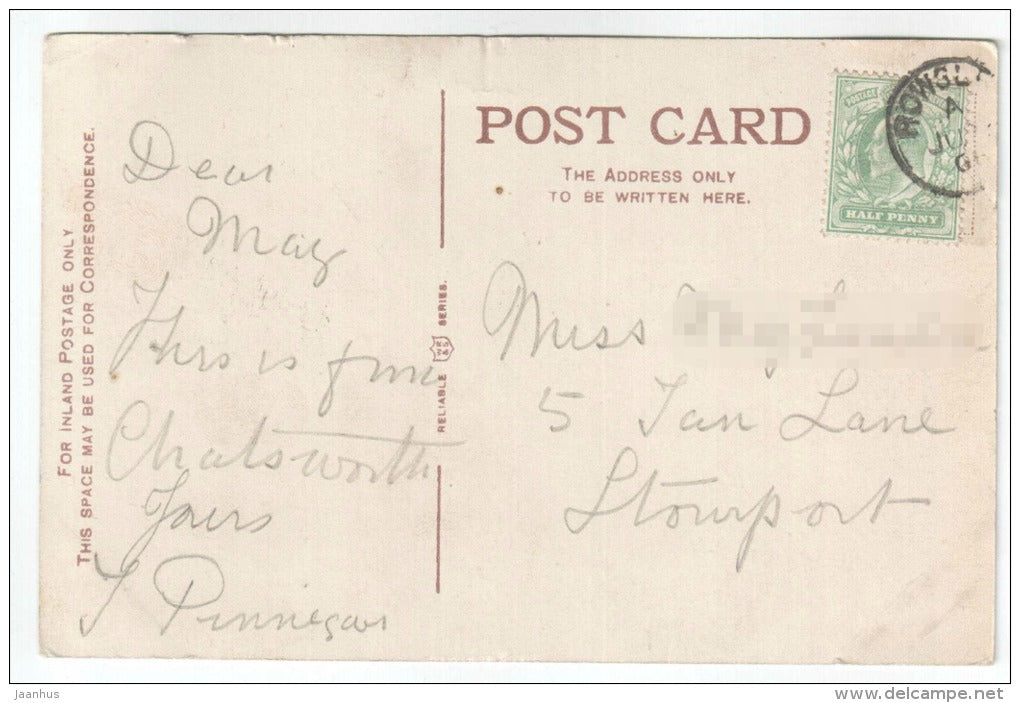 FOR INLAND POSTAGE ONLY
THIS SPACE MAY BE USED FOR CORRESPONDENCE.
Dear
May
This is from
Chatsworth
Yours
Pinnegar
RELIABLE
SERIES.
POST CARD
THE ADDRESS ONLY
TO BE WRITTEN HERE.
POSTAGE
HALF PENNY
ROWSL
A
JU
Miss
5 Tan Lane
Stourport
jaanhus
www.delcampe.net